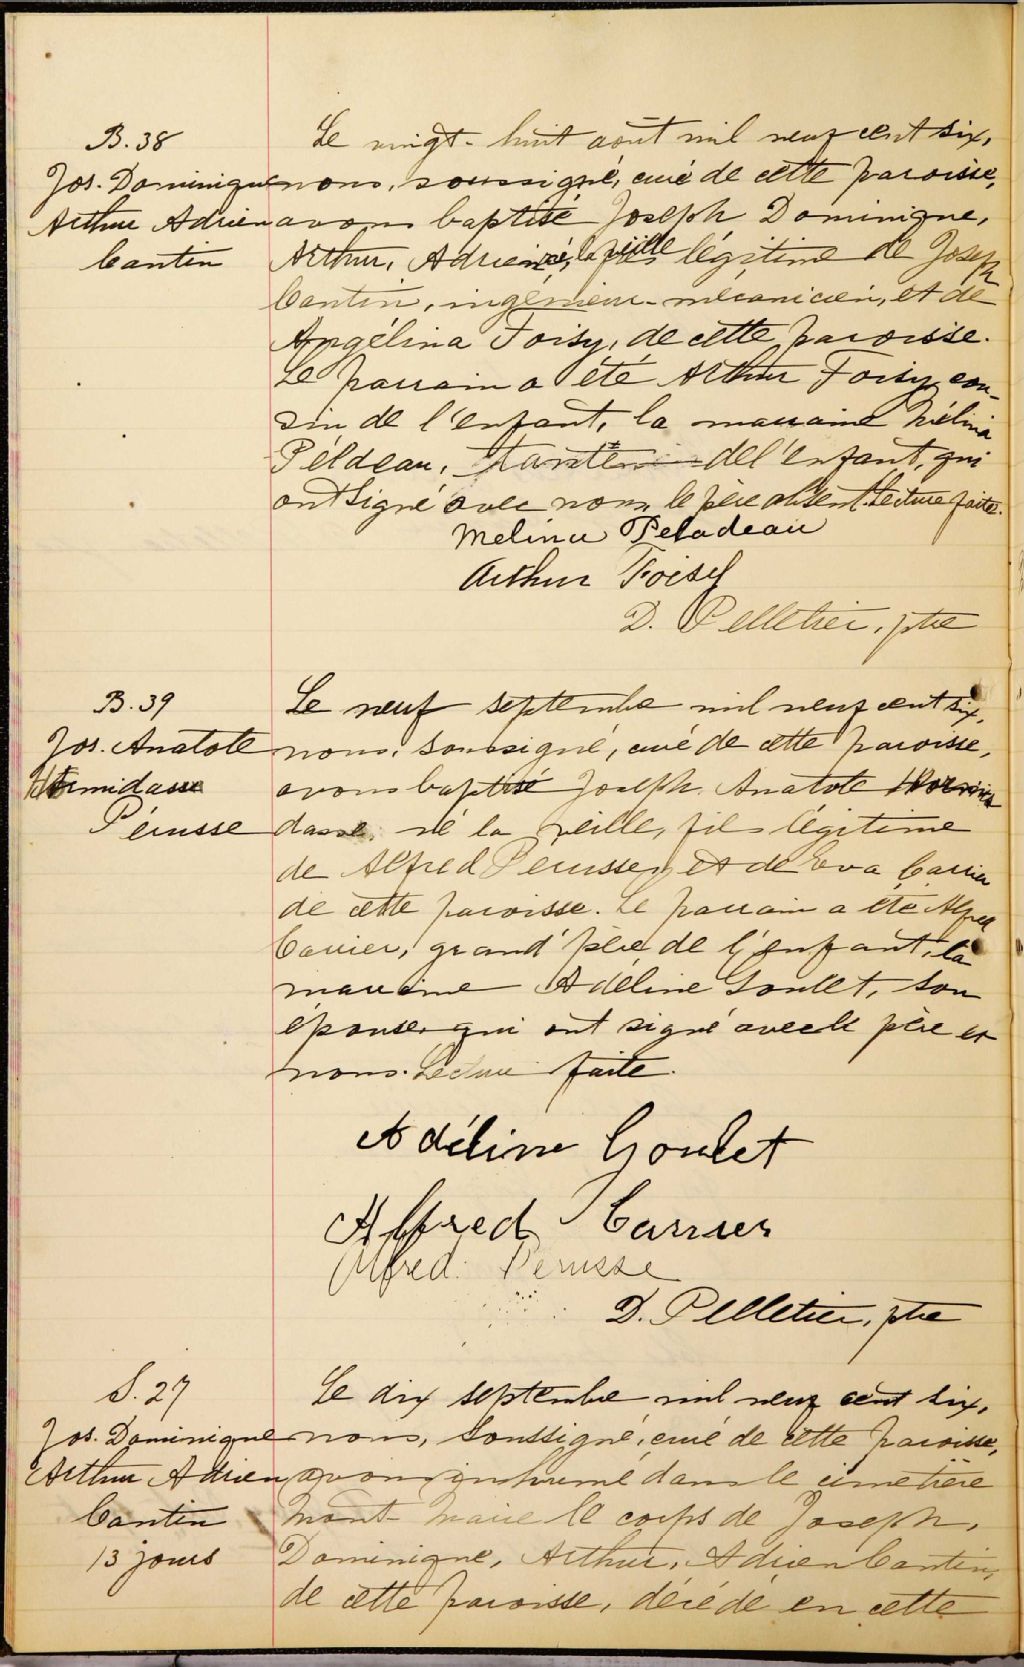 B. 38
Jos. Dominique
Arthur Adrien
Cantin
Le vingt-huit août mil neuf cent six,
nous, soussigné, curé de cette paroisse,
avons baptisé Joseph Dominique,
Arthur, Adrien, né la veille, fils légitime de Joseph
Cantin, ingénieur-mécanicien, et de
Angélina Foisy, de cette paroisse.
Le parrain a été Arthur Foisy, cou-
sin de l'enfant, la marraine Mélina
Péladeau, tante de l'enfant, qui
ont signé avec nous, le père absent. Lecture faite.
Melina Peladeau
Arthur Foisy
D. Pelletier, ptre
B. 39
Jos. Anatole
Hormidasse
Pérusse
Le neuf septembre mil neuf cent six,
nous, soussigné, curé de cette paroisse,
avons baptisé Joseph Anatole Hormis
dasse, né la veille, fils légitime
de Alfred Pérusse, et de Eva Carrier
de cette paroisse. Le parrain a été Alfred
Carrier, grand'père de l'enfant, la
marraine Adéline Goulet, son
épouse, qui ont signé avec le père et
nous. Lecture faite.
Adéline Goulet
Alfred Carrier
Alfred Perusse
D. Pelletier, ptre
S. 27
Jos. Dominique
Arthur Adrien
Cantin
13 jours
Le dix septembre mil neuf cent six,
nous, soussigné, curé de cette paroisse,
avons inhumé dans le cimetière
Mont-Marie le corps de Joseph,
Dominique, Arthur, Adrien Cantin,
de cette paroisse, décédé en cette